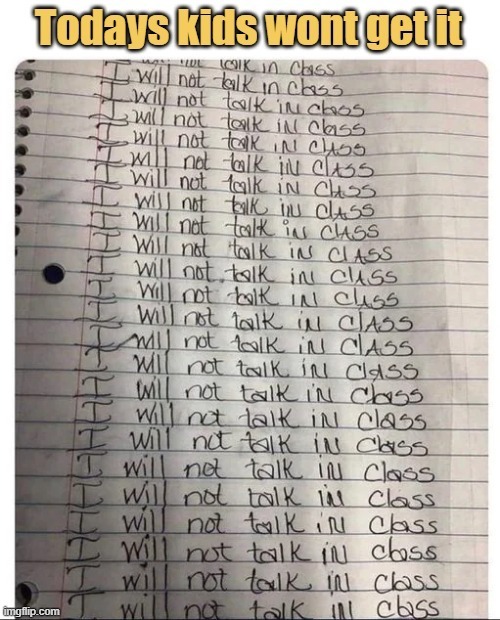 Todays kids wont get it
not talk in Class
I will not talk in Class
I will not talk in class
I will not talk in Class
I will not talk in ClASS
I will not talk in ClASS
I will not talk in ClASS
I will not talk in ClASS
I will not talk in ClASS
I will not talk in ClASS
I will not talk in ClASS
I will not talk in ClASS
I will not talk in ClASS
I will not talk in ClASS
I will not talk in Class
I will not talk in Class
I will not talk in Class
I will not talk in Class
I will not talk in Class
I will not talk in Class
I will not talk in Class
I will not talk in class
I will not talk in class
I will not talk in class
imgflip.com